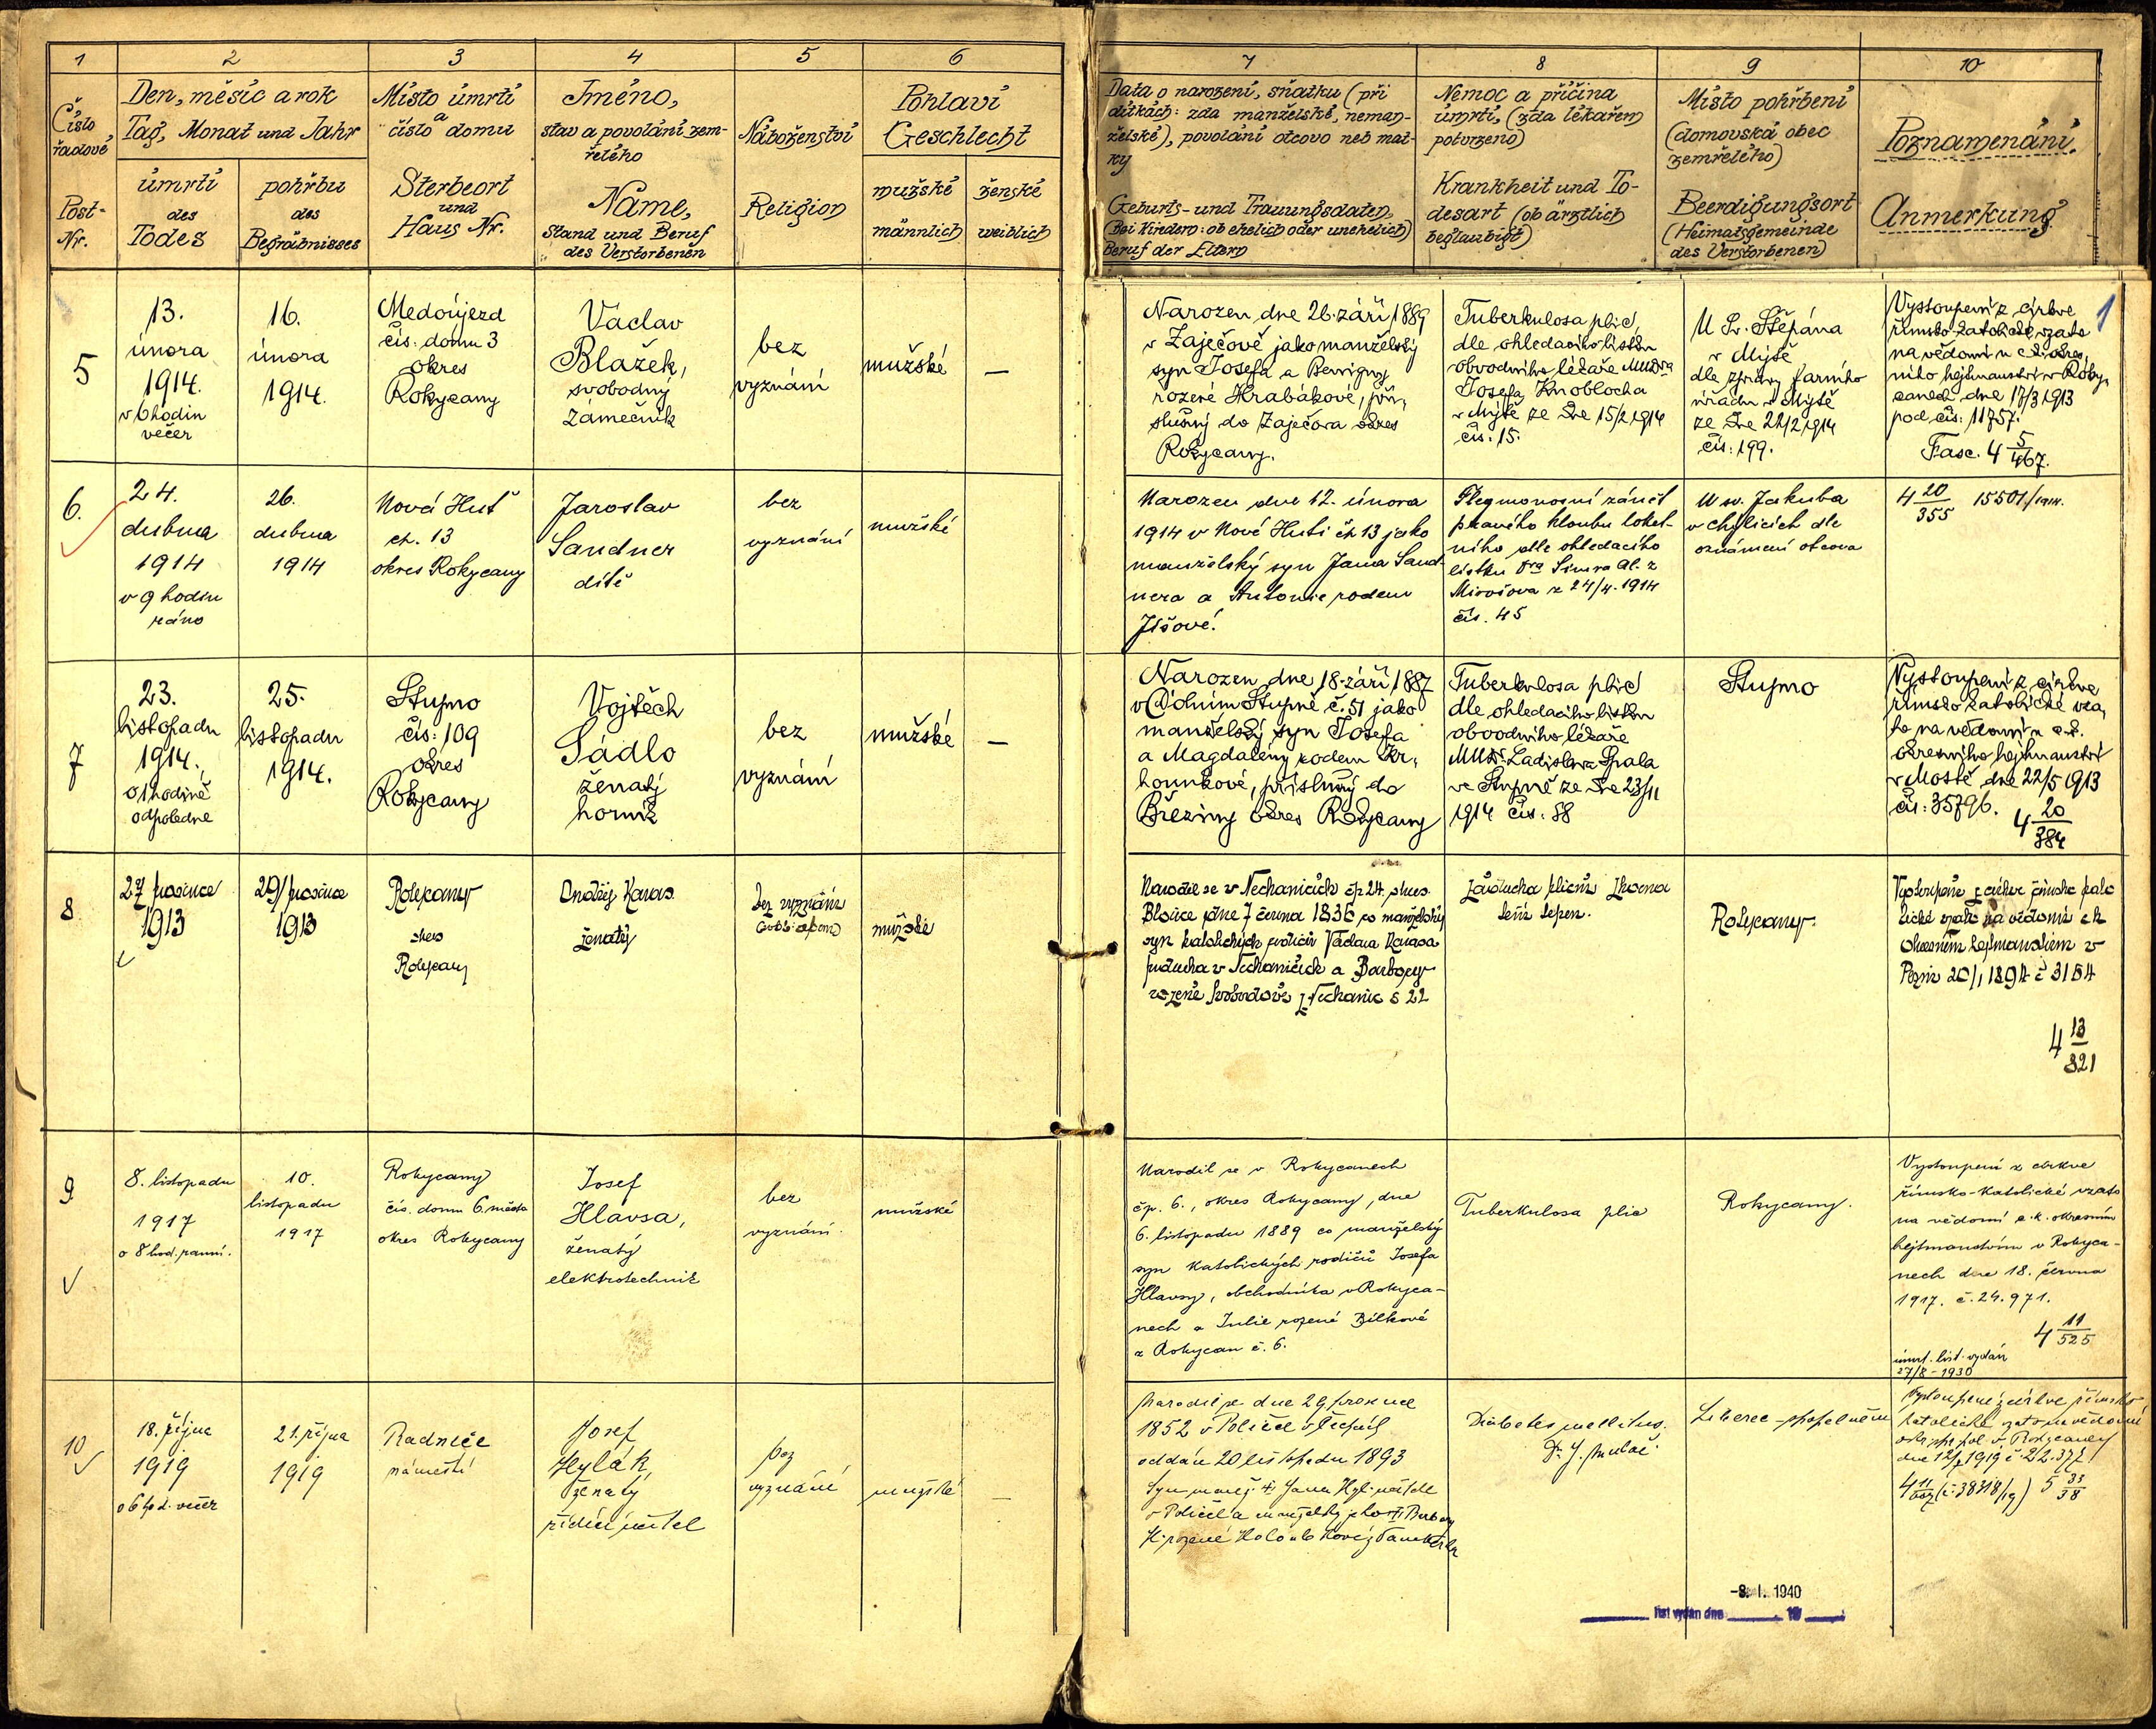 1
2
3
4
5
6
7
8
9
10
Číslo
řadové
Post-
Nr.
Den, měsíc a rok
Tag, Monat und Jahr
úmrtí
des
Todes
pohřbu
des
Begräbnisses
Místo úmrtí
a
číslo domu
Sterbeort
und
Haus Nr.
Jméno,
stav a povolání zem-
řelého
Name,
Stand und Beruf
des Verstorbenen
Náboženství
Religion
Pohlaví
Geschlecht
mužské
männlich
ženské
weiblich
Data o narození, sňatku (při
dítkách: zda manželské, neman-
želské), povolání otcovo neb mat-
ky
Geburts- und Trauungsdaten,
(Bei Kindern: ob ehelich oder unehelich)
Beruf der Eltern
Nemoc a příčina
úmrtí, (zda lékařem
potvrzeno)
Krankheit und To-
desart (ob ärztlich
beglaubigt)
Místo pohřbení
(domovská obec
zemřelého)
Beerdigungsort
(Heimatsgemeinde
des Verstorbenen)
Poznamenání.
Anmerkung
1
5
13.
února
1914.
v 6 hodin
večer
16.
února
1914.
Medoújezd
čís. domu 3
okres
Rokycany
Václav
Blažek,
svobodný
zámečník
bez
vyznání
mužské
—
Narozen dne 26. září 1889
v Zaječově jako manželský
syn Josefa a Benigny
rozené Hrabákové, pří-
slušný do Zaječova okres
Rokycany.
Tuberkulosa plic,
dle ohledacího lístku
obvodního lékaře MUDra
Josefa Knoblocha
v Mýtě ze dne 15/2 1914
čís: 15.
U Sv. Štěpána
v Mýtě
dle zprávy farního
úřadu v Mýtě
ze dne 22/2 1914
čís: 199.
Vystoupení z církve
římsko katolické vzato
na vědomí u c.k. okres-
ního hejtmanství v Roky-
canech dne 17/3 1913
pod čís: 11757.
Fasc. 4 5/467.
6.
24.
dubna
1914
v 9 hodin
ráno
26.
dubna
1914
Nová Huť
čp. 13
okres Rokycany
Jaroslav
Sandner
dítě
bez
vyznání
mužské
Narozen dne 12. února
1914 v Nové Huti čp. 13 jako
manželský syn Jana Sand-
nera a Antonie rodem
Jíšové.
Flegmonosní zánět
pravého kloubu loket-
ního dle ohledacího
lístku Dra Al. z
Mirošova z 24/4. 1914
čís. 45
U sv. Jakuba
v dle
oznámení otcova
4 20/355 15501/1914.
7
23.
listopadu
1914.
o 1 hodině
odpoledne
25.
listopadu
1914.
Stupno
čís: 109
okres
Rokycany
Vojtěch
Sádlo
ženatý
horník
bez
vyznání
mužské
—
Narozen dne 18. září 1887
v Dolním Stupně č. 51 jako
manželský syn Josefa
a Magdaleny rodem Kr-
hounkové, příslušný do
Březiny okres Rokycany
Tuberkulosa plic
dle ohledacího lístku
obvodního lékaře
MUDr. Ladislava Spala
ve Stupně ze dne 23/11
1914 čís: 88
Stupno
Vystoupení z církve
římsko katolické vza-
to na vědomí u c.k.
okresního hejtmanství
v Mostě dne 22/5 1913
čís: 35796.
4 20/384
8
27 prosince
1913
29/prosince
1913
Rokycany
okres
Rokycany
Ondřej Karas
ženatý
bez vyznání
mužské
Narodil se v Nechanicích čp. 24. okres
Blovice dne 7 června 1836 co manželský
syn katolických rodičů Václava Karasa
v Nechanicích a Barbory
rozené Svobodové z Nechanic č 22
Záducha plicní
Rokycany.
Vystoupení z církve římsko kato
lické vzato na vědomí c k
okresním hejtmanstvím v
Plzni 20/1 1894 č 3154
4 13/321
9
8. listopadu
1917
o 8 hod. ranní.
10.
listopadu
1917
Rokycany
čís. domu 6. město
okres Rokycany
Josef
Hlavsa,
ženatý
elektrotechnik
bez
vyznání
mužské
Narodil se v Rokycanech
čp. 6., okres Rokycany, dne
6. listopadu 1889 co manželský
syn katolických rodičů Josefa
Hlavsy, obchodníka v Rokyca-
nech a Julie rozené Bílkové
z Rokycan č. 6.
Tuberkulosa plic
Rokycany.
Vystoupení z církve
římsko-katolické vzato
na vědomí c.k. okresním
hejtmanstvím v Rokyca-
nech dne 18. června
1917. č. 24.971.
4 11/525
úmrt. list vydán
27/8 - 1930
10
18. října
1919
o 6 hod. večer
21. října
1919
Radnice
náměstí
Josef
Hylák,
ženatý
řídící učitel
bez
vyznání
mužské
—
Narodil se dne 29 prosince
1852 v Poličce v Čechách
oddán 20 listopadu 1893
Syn manž. Jana učitele
v Poličce a manželky jeho Barbory
H. rozené Holoubkové z
Diabetes mellitus.
Dr. J.
Liberec
Vystoupení z církve římsko
katolické vzato na vědomí
v Rokycanech
dne 12/ 1919 č 22.377
(č: 38318/19) 5 33/38
-8. I. 1940
list vydán dne 19